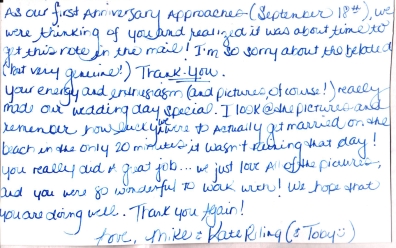 As our first Anniversary Approaches (September 18th), we
were thinking of you and realized it was about time to
get this note in the mail! I'm so sorry about the belated
(but very genuine!) Thank-you.
Your energy and enthusiasm (and pictures, of course!) really
made our wedding day special. I look @ the pictures and
remember how lucky we were to Actually get married on the
beach in the only 20 minutes it wasn't raining that day!
You really did A great job... we just love All of the pictures,
and you were so wonderful to work with! We hope that
you are doing well. Thank you Again!
Love, Mike & Kate (& Toby :)